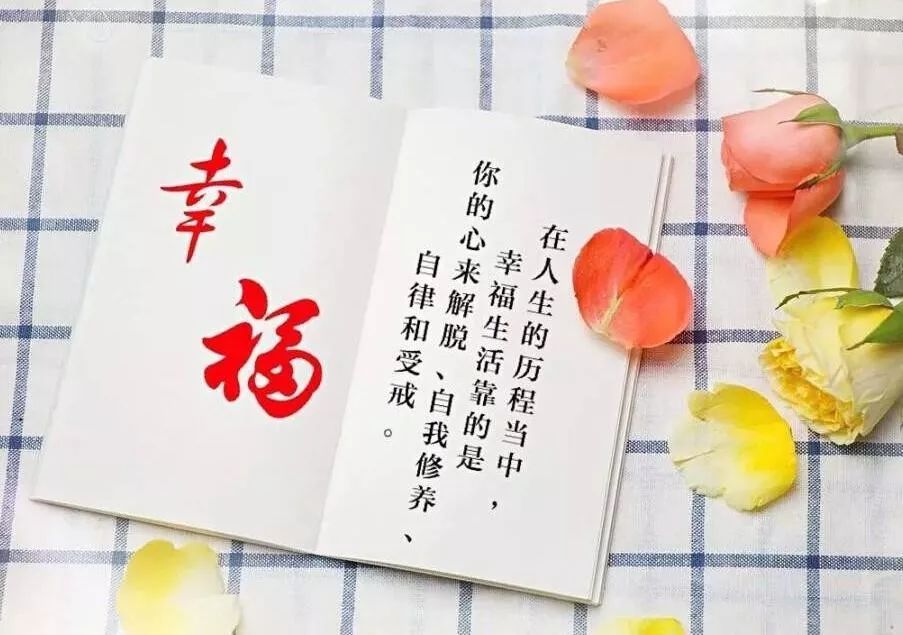 幸福
在人生的历程当中，
幸福生活靠的是
你的心来解脱、自我修养、
自律和受戒。